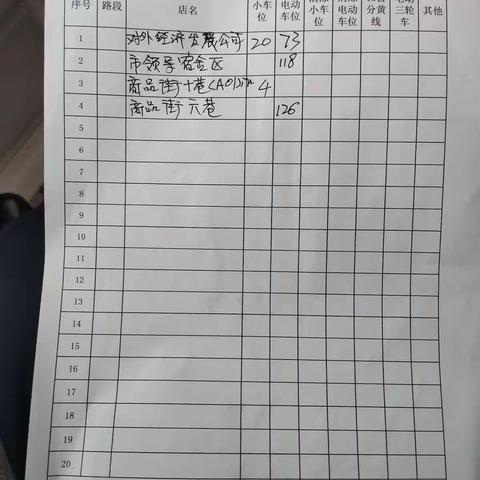 序号 路段 店名 小车位 电动车位 清除小车位 清除电动车位 分黄线 电动三轮车 其他
1 对外经济发展公司 20 73
2 市领导宿舍区 118
3 商品街十巷 4
4 商品街六巷 126
5
6
7
8
9
10
11
12
13
14
15
16
17
18
19
20